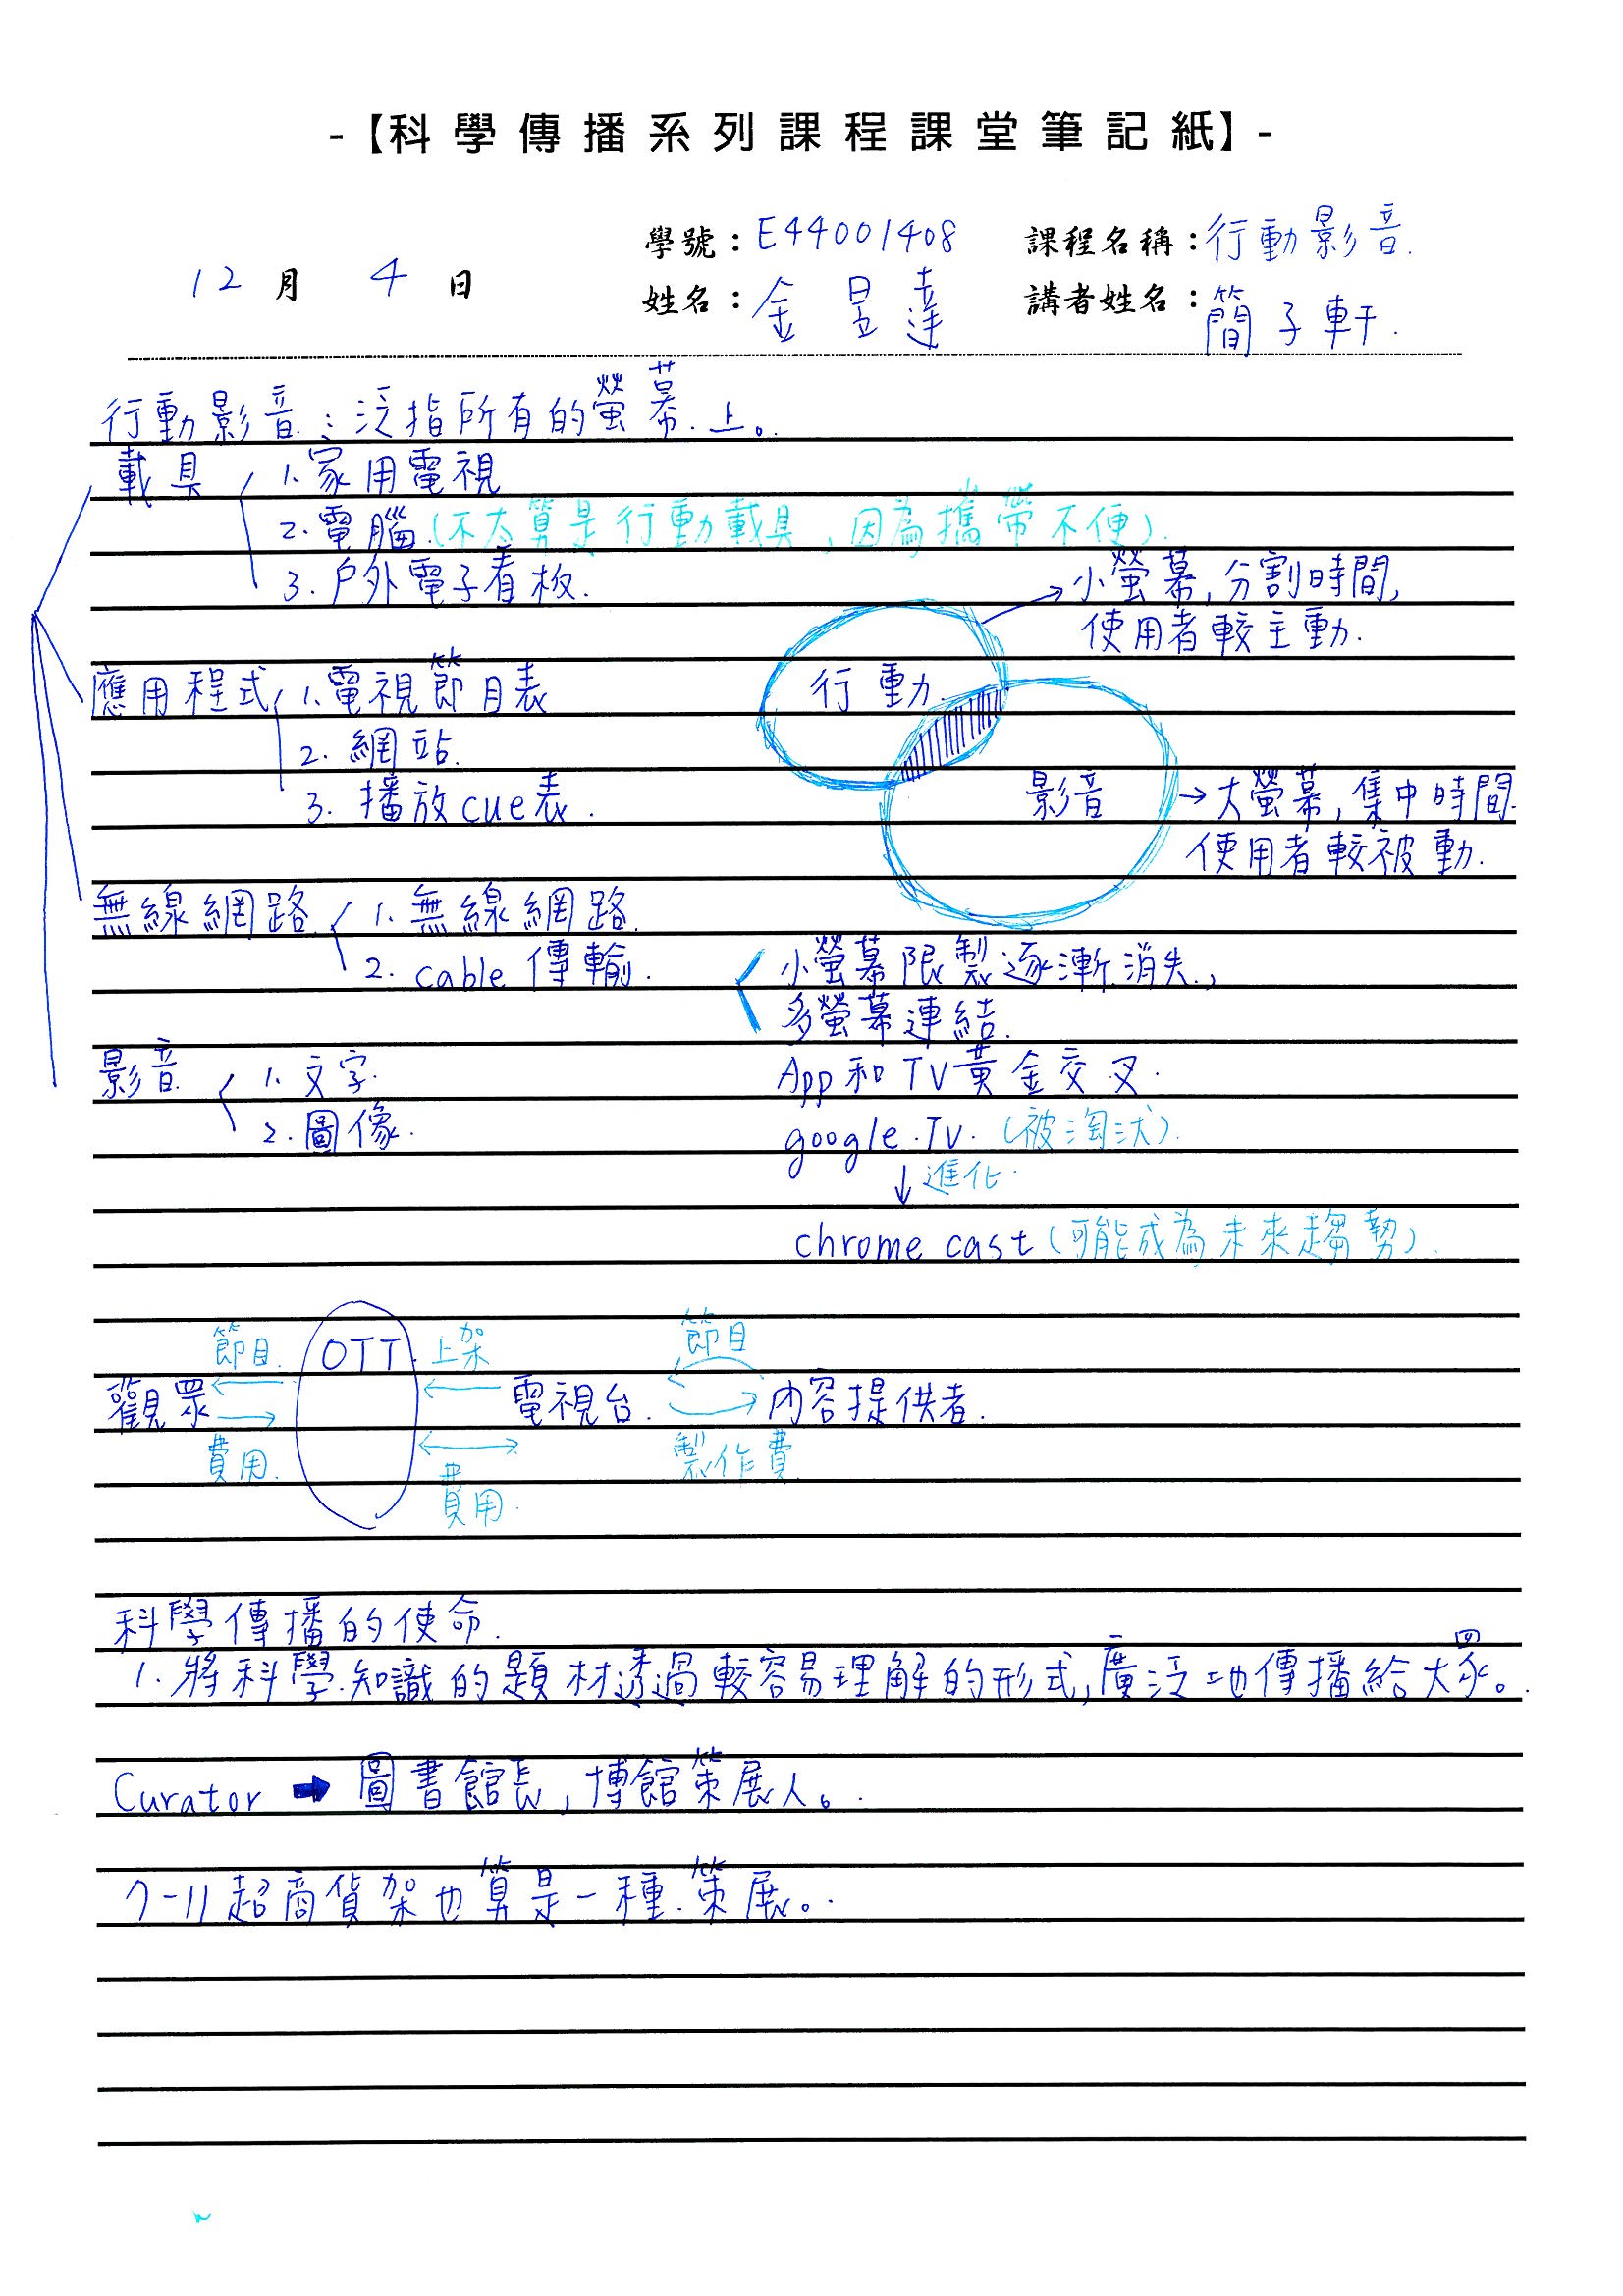 -【科學傳播系列課程課堂筆記紙】-
學號：E44001408 課程名稱：行動影音.
12月4日 姓名：金昱達 講者姓名：簡子軒.
行動影音：泛指所有的螢幕上。
載具 1.家用電視
2.電腦.(不太算是行動載具,因為攜帶不便).
3.戶外電子看板.
小螢幕,分割時間,
使用者較主動.
應用程式 1.電視節目表
2.網站.
3.播放cue表.
行動
影音
大螢幕,集中時間.
使用者較被動.
無線網路 1.無線網路.
2.cable傳輸.
小螢幕限製逐漸消失,
多螢幕連結.
影音 1.文字.
2.圖像.
App和TV黃金交叉.
google TV.(被淘汰).
↓進化.
chrome cast(可能成為未來趨勢).
節目. OTT. 上架 節目
觀眾 電視台. 內容提供者.
費用. 費用. 製作費
科學傳播的使命.
1.將科學知識的題材透過較容易理解的形式,廣泛地傳播給大眾。
Curator ➡ 圖書館長,博館策展人。
7-11超商貨架也算是一種策展。